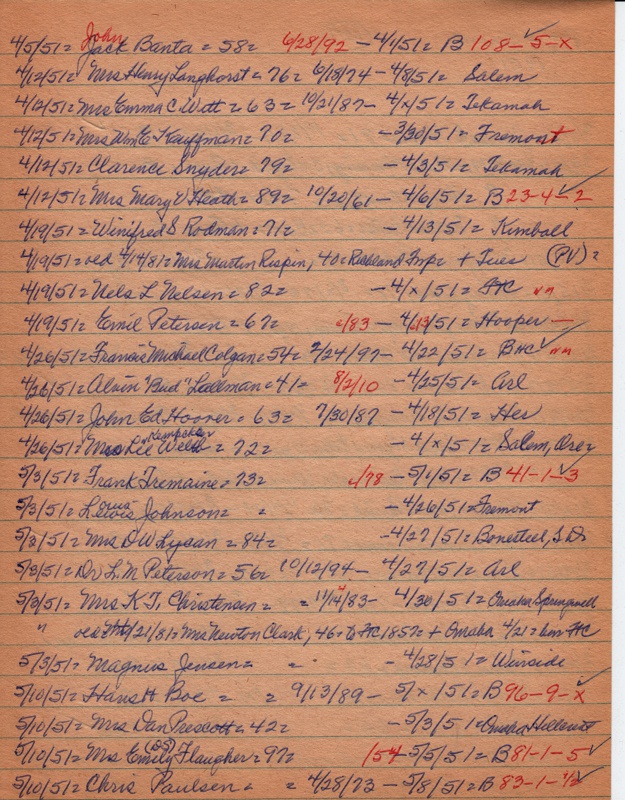 4/5/51= John Jack Banta = 58= 6/28/92 - 4/1/51= B 108-5-x
4/12/51= Mrs Henry Langhorst = 76= 6/18/74 - 4/8/51= Salem
4/12/51= Mrs Emma C Witt = 63= 10/21/87 - 4/x/51= Tekamah
4/12/51= Mrs Wm E Kauffman = 70= - 3/30/51= Fremont
4/12/51= Clarence Snyder = 79= - 4/3/51= Tekamah
4/12/51= Mrs Mary V Heath = 89= 10/20/61 - 4/6/51= B 23-4-2
4/19/51= Winifred S Rodman = 71= - 4/13/51= Kimball
4/19/51= 4/14/81= Mrs Martin Rispin, 40= Richland Impr + Tues (PV)=
4/19/51= Nels L Nelsen = 82= - 4/x/51= HC
4/19/51= Emil Petersen = 67= c/83 - 4/13/51= Hooper -
4/26/51= Francis Michael Colgan = 54= 2/24/97 - 4/22/51= BHC
4/26/51= Alvin "Bud" Ladlman = 41= 8/2/10 - 4/25/51= Arl
4/26/51= John Ed Hoover = 63= 7/30/87 - 4/18/51= Her
4/26/51= Mrs Kempcke Webb = 72= - 4/x/51= Salem, Ore=
5/3/51= Frank Tremaine = 73= c/78 - 5/1/51= B 41-1-3
5/3/51= Lewis Johnson = = - 4/26/51= Fremont
5/3/51= Mrs D W Lycan = 84= - 4/27/51= Bonesteel, S.D.
5/3/51= Dr L. M Peterson = 56= 10/12/94 - 4/27/51= Arl
5/3/51= Mrs K. T. Christensen = = 11/14/83 - 4/30/51= Omaha Springwell
" 4/21/81= Mrs Newton Clark, 46= to HC 1857= + Omaha 4/21= bur HC
5/3/51= Magnus Jensen = = - 4/28/51= Winside
5/10/51= Hans H Boe = = 9/13/89 - 5/x/51= B 96-9-x
5/10/51= Mrs Dan Prescott = 42= - 5/3/51= Omaha Hillcrest
5/10/51= Mrs Emily (DS) Flaugher = 97= /54 - 5/5/51= B 81-1-5
5/10/51= Chris Paulsen = = 4/28/73 - 5/8/51= B 83-1-1/2